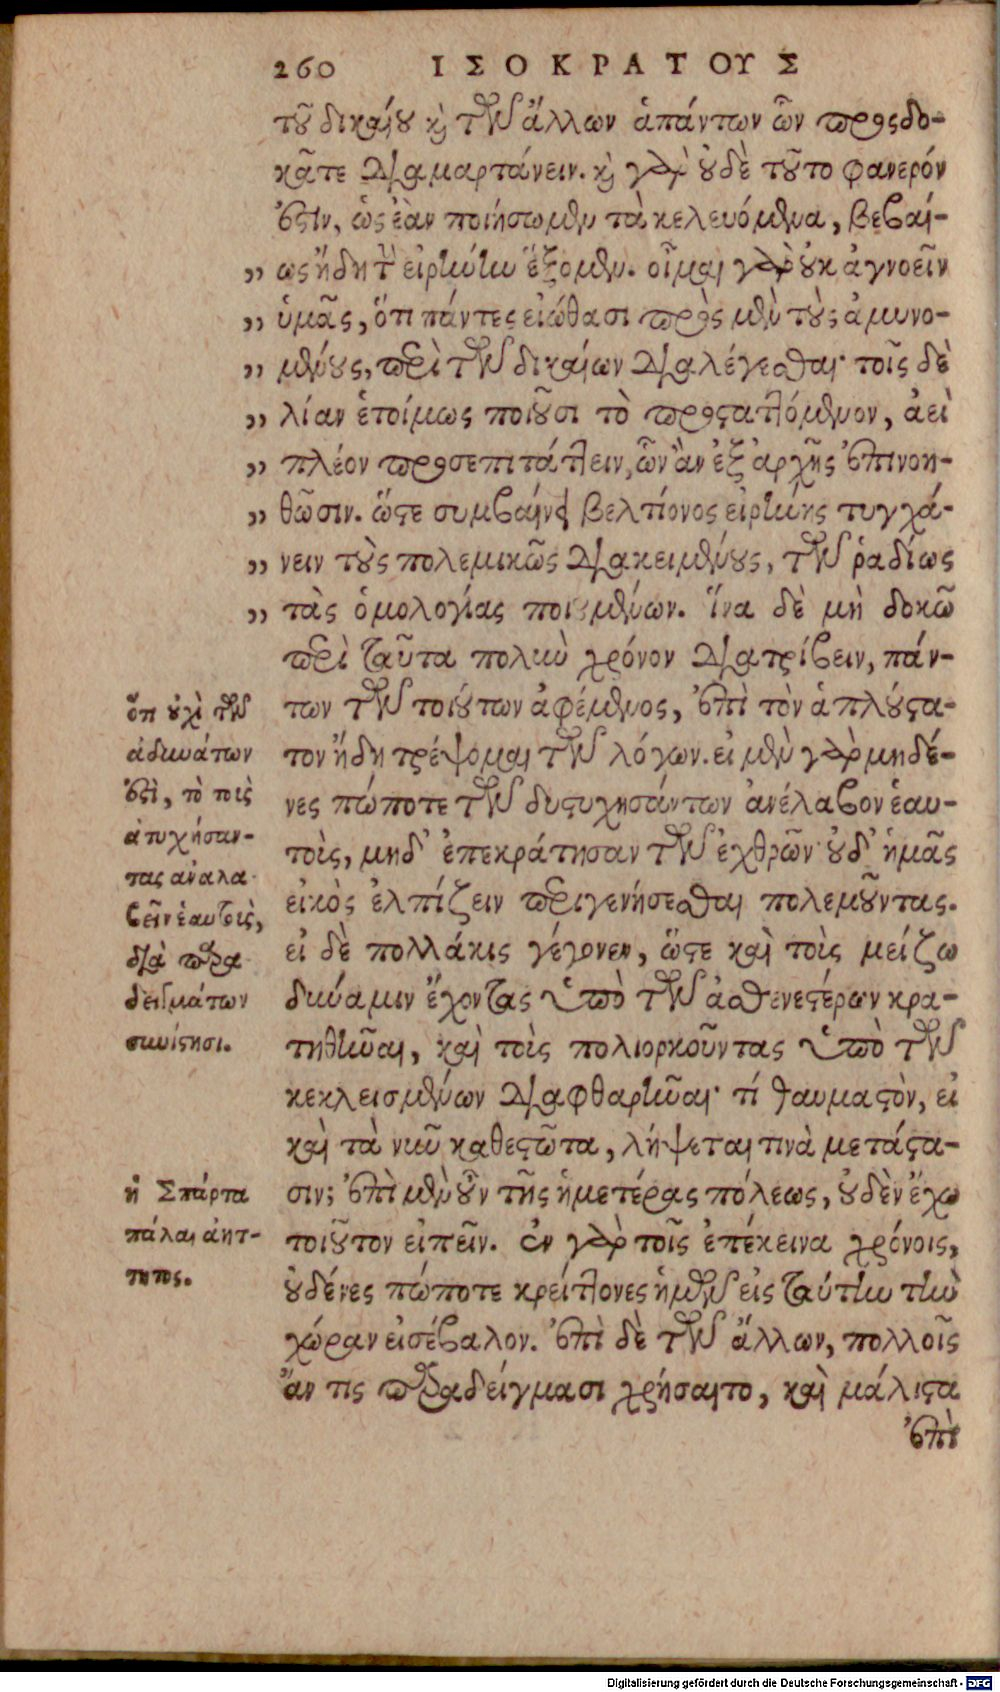 260 ΙΣΟΚΡΑΤΟΥΣ
τοῦ δικαίου καὶ τῶν ἄλλων ἁπάντων ὧν προςδο-
κᾶτε διαμαρτάνειν. καὶ γὰρ οὐδὲ τοῦτο φανερόν
ἐστιν, ὡς ἐὰν ποιήσωμεν τὰ κελευόμενα, βεβαί-
„ ως ἤδη τ̀ εἰρήνην ἕξομεν. οἶμαι γὰρ οὐκ ἀγνοεῖν
„ ὑμᾶς, ὅτι πάντες εἰώθασι πρὸς μὲν τοὺς ἀμυνο-
„ μένους, περὶ τῶν δικαίων διαλέγεσθαι· τοῖς δὲ
„ λίαν ἑτοίμως ποιοῦσι τὸ προςαττόμενον, ἀεὶ
„ πλέον προσεπιτάττειν, ὧν ἂν ἐξ ἀρχῆς ἐπινοη-
„ θῶσιν. ὥστε συμβαίνει βελτίονος εἰρήνης τυγχά-
„ νειν τοὺς πολεμικῶς διακειμένους, τῶν ῥαδίως
„ τὰς ὁμολογίας ποιουμένων. ἵνα δὲ μὴ δοκῶ
περὶ ταῦτα πολὺν χρόνον διατρίβειν, πάν-
των τῶν τοιούτων ἀφέμενος, ἐπὶ τὸν ἁπλούστα-
τον ἤδη τρέψομαι τῶν λόγων. εἰ μὲν γὰρ μηδέ-
νες πώποτε τῶν δυστυχησάντων ἀνέλαβον ἑαυ-
τοὺς, μηδ' ἐπεκράτησαν τῶν ἐχθρῶν· οὐδ' ἡμᾶς
εἰκὸς ἐλπίζειν περιγενήσεσθαι πολεμοῦντας.
εἰ δὲ πολλάκις γέγονεν, ὥστε καὶ τοὺς μείζω
δύναμιν ἔχοντας ὑπὸ τῶν ἀσθενεστέρων κρα-
τηθῆναι, καὶ τοὺς πολιορκοῦντας ὑπὸ τῶν
κεκλεισμένων διαφθαρῆναι· τί θαυμαστὸν, εἰ
καὶ τὰ νῦν καθεστῶτα, λήψεταί τινὰ μετάστα-
σιν; ἐπὶ μὲν οὖν τῆς ἡμετέρας πόλεως, οὐδὲν ἔχω
τοιοῦτον εἰπεῖν. ἐν γὰρ τοῖς ἐπέκεινα χρόνοις,
οὐδένες πώποτε κρείττονες ἡμῶν εἰς ταύτην τὴν
χώραν εἰσέβαλον. ἐπὶ δὲ τῶν ἄλλων, πολλοῖς
ἄν τις παραδείγμασι χρήσαιτο, καὶ μάλιστα
ἐπὶ
ὅτι οὐχὶ τῶν
ἀδυνάτων
ἐστὶ, τὸ τοὺς
ἀτυχήσαν-
τας ἀναλα-
βεῖν ἑαυτοὺς,
διὰ παρα-
δειγμάτων
συνίστησι.
ἡ Σπάρτα
πάλαι ἀήτ-
τητος.
Digitalisierung gefördert durch die Deutsche Forschungsgemeinschaft - DFG